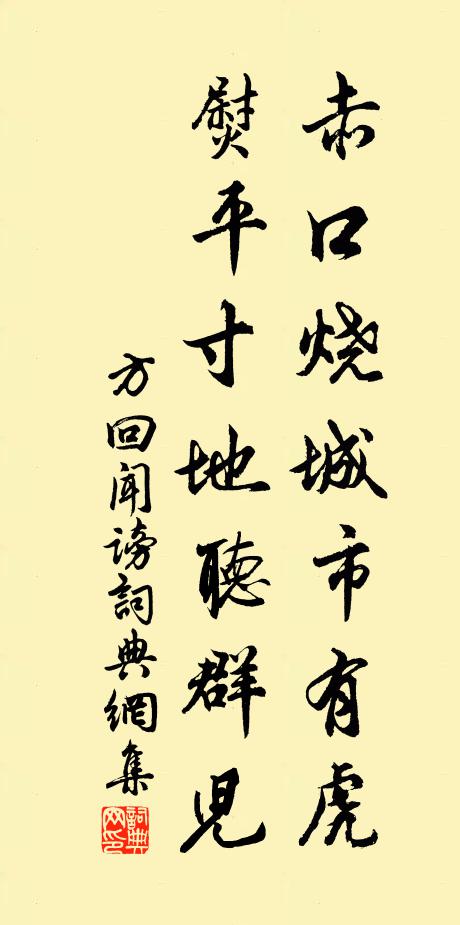 赤口烧城市有虎
熨平寸地聽群児
方回聞謗詞典網集
詞典網印